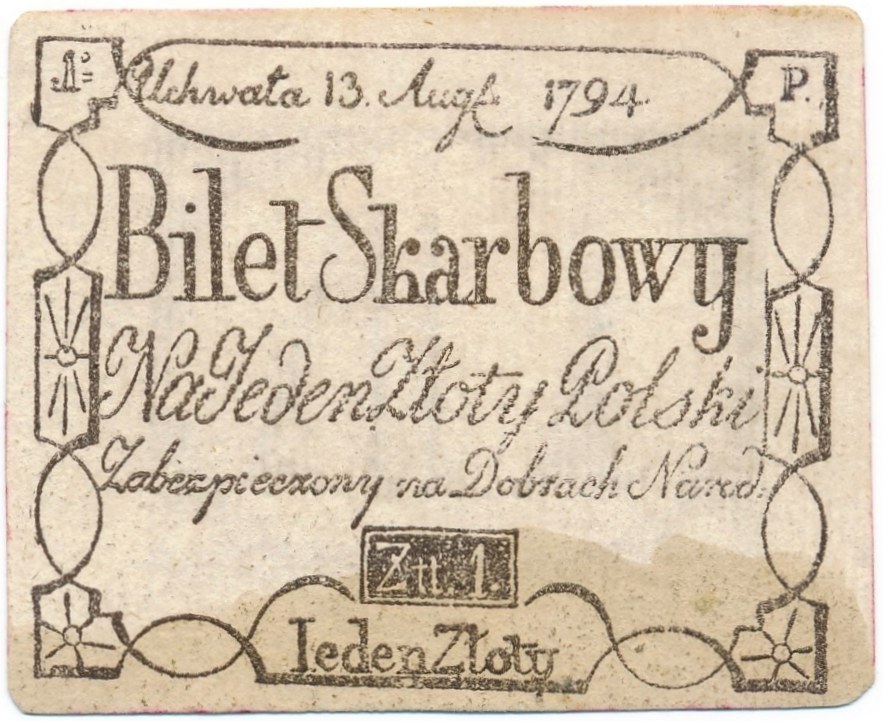 1º= P.
Uchwała 13. Augſ. 1794.
Bilet Skarbowy
Na Jeden Złoty Polski
Zabezpieczony na Dobrach Narod.
Złł. 1.
Ieden Złoty